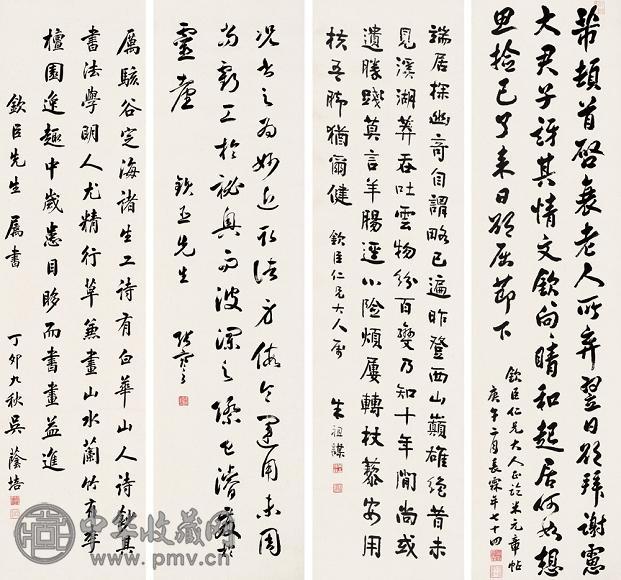 芾頓首啓衰老人所弃翌日欲拜謝憲
大君子訝其情文欽向晴和起居何如想
思捨已了来日欲屈節下
欽臣仁兄大人正誃米元章帖
庚午二月長霖年七十四
端居探幽奇自謂略已遍昨登西山巔雄絶昔未
見溪湖莽吞吐雲物紛百變乃知十年間尚或
遺勝踐莫言羊腸逕小險煩屢轉杖藜安用
扶吾脚猶爾健
欽臣仁兄大人屬
朱祖謀
況書之為妙近取諸身假令運用未周
尚虧工於祕奥而波瀾之際已濬發於
靈臺
欽丞先生
張謇
厲駭谷定海諸生工詩有白華山人詩鈔其
書法學明人尤精行草兼畫山水蘭竹有李
檀園逸趣中歲患目眵而書畫益進
欽臣先生屬書
丁卯九秋吳蔭培
中华收藏网
www.pmv.cn